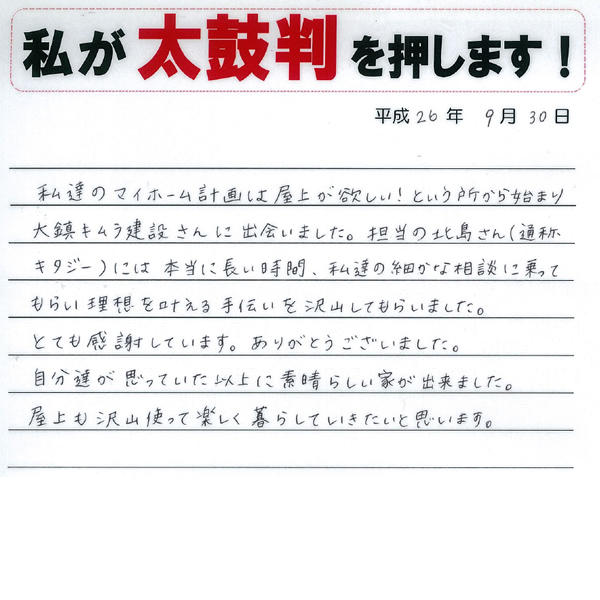 私が太鼓判を押します！
平成26年 9月30日
私達のマイホーム計画は屋上が欲しい！という所から始まり
大鎮キムラ建設さんに出会いました。担当の北島さん(通称
キタジー)には本当に長い時間、私達の細かな相談に乗って
もらい理想を叶える手伝いを沢山してもらいました。
とても感謝しています。ありがとうございました。
自分達が思っていた以上に素晴らしい家が出来ました。
屋上も沢山使って楽しく暮らしていきたいと思います。